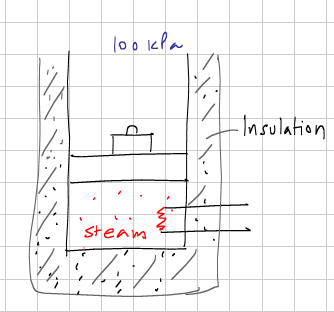 100 kPa
Insulation
steam